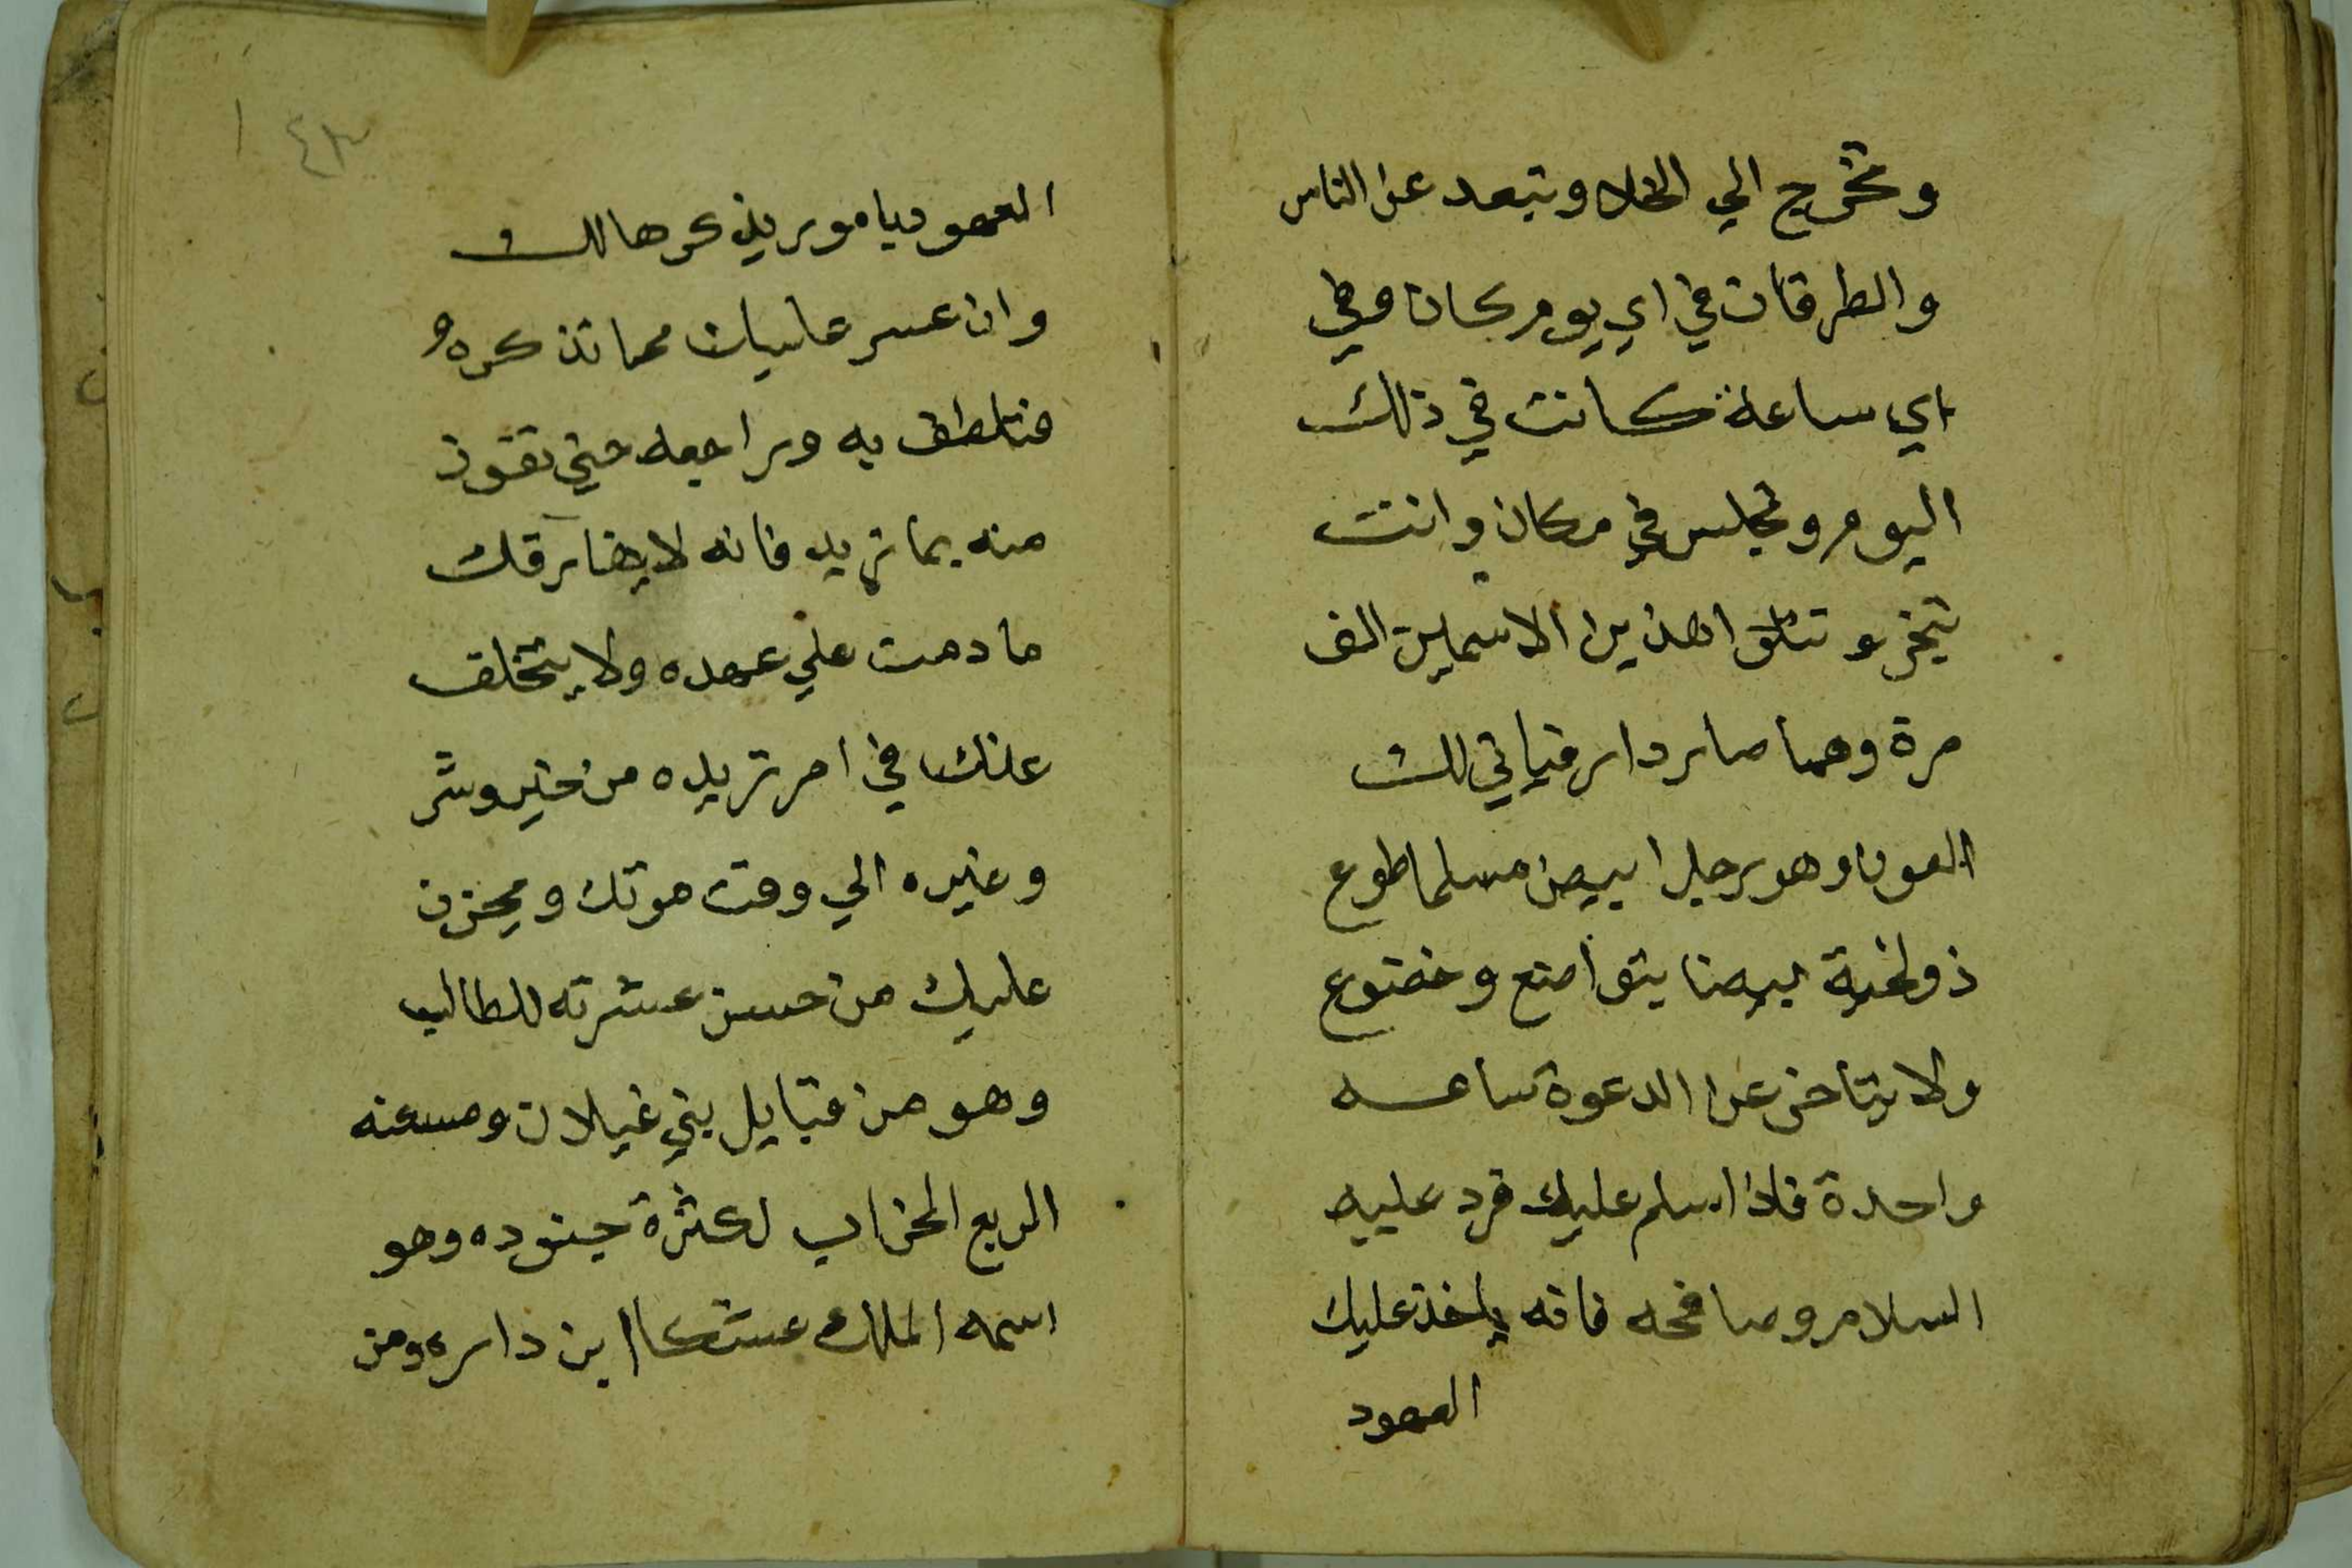 وتخرج الي الخلا وتبعد عن الناس
والطرقات في اي يوم كان وفي
اي ساعة كانت في ذلك
اليوم وتجلس في مكان وانت
تبخر وتتلوا هذين الاسمين الف
مرة وهما صار دار فياتي لك
العون وهو رجل ابيض مسلما طوع
ذو لحية بيضا يتواضع وخضوع
ولا يتاخر عن الدعوة ساعه
واحدة فاذا سلم عليك فرد عليه
السلام وصافحه فانه ياخذ عليك
العهود
العهود بامور يذكرها لك
وان عسر عليك مما تذكره
فتلطف به وراجعه حتي تفوز
منه بما تريد فانه لا يفارقك
ما دمت علي عهده ولا يتخلف
عنك في امر تريده من خير وشر
وغيره الي وقت موتك ويحزن
عليك من حسن عشرته للطالب
وهو من قبايل بني غيلان ومسكنه
الربع الخراب لكثرة جنوده وهو
اسمه الملك ابن داره ومن